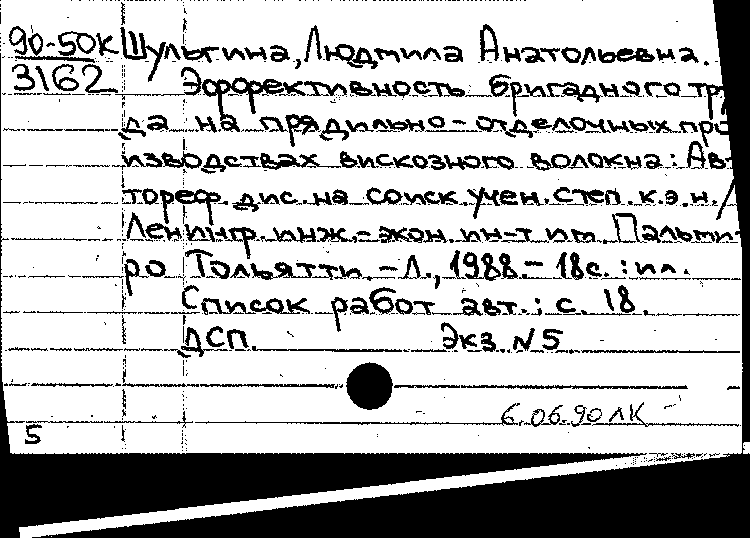 90-50К Шульгина, Людмила Анатольевна.
3162 Эффективность бригадного тру
да на прядильно-отделочных про
изводствах вискозного волокна: Ав-
тореф. дис. на соиск. учен. степ. к.э.н. /
Ленингр. инж.-экон. ин-т им. Пальми-
ро Тольятти. - Л., 1988. - 18с. : ил.
Список работ авт.: с. 18.
ДСП. Экз. N5
6.06.90 ЛК
5